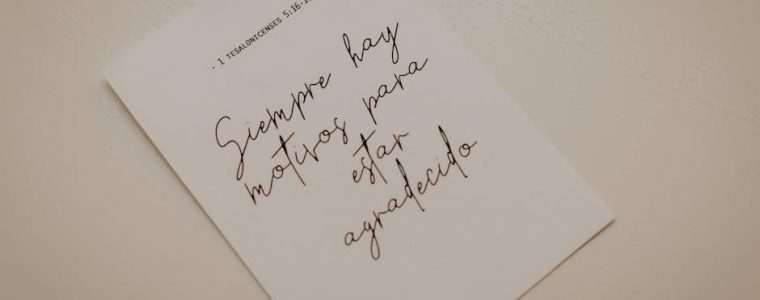 - 1 TESALONICENSES 5:16-
Siempre hay
motivos para
estar
agradecido